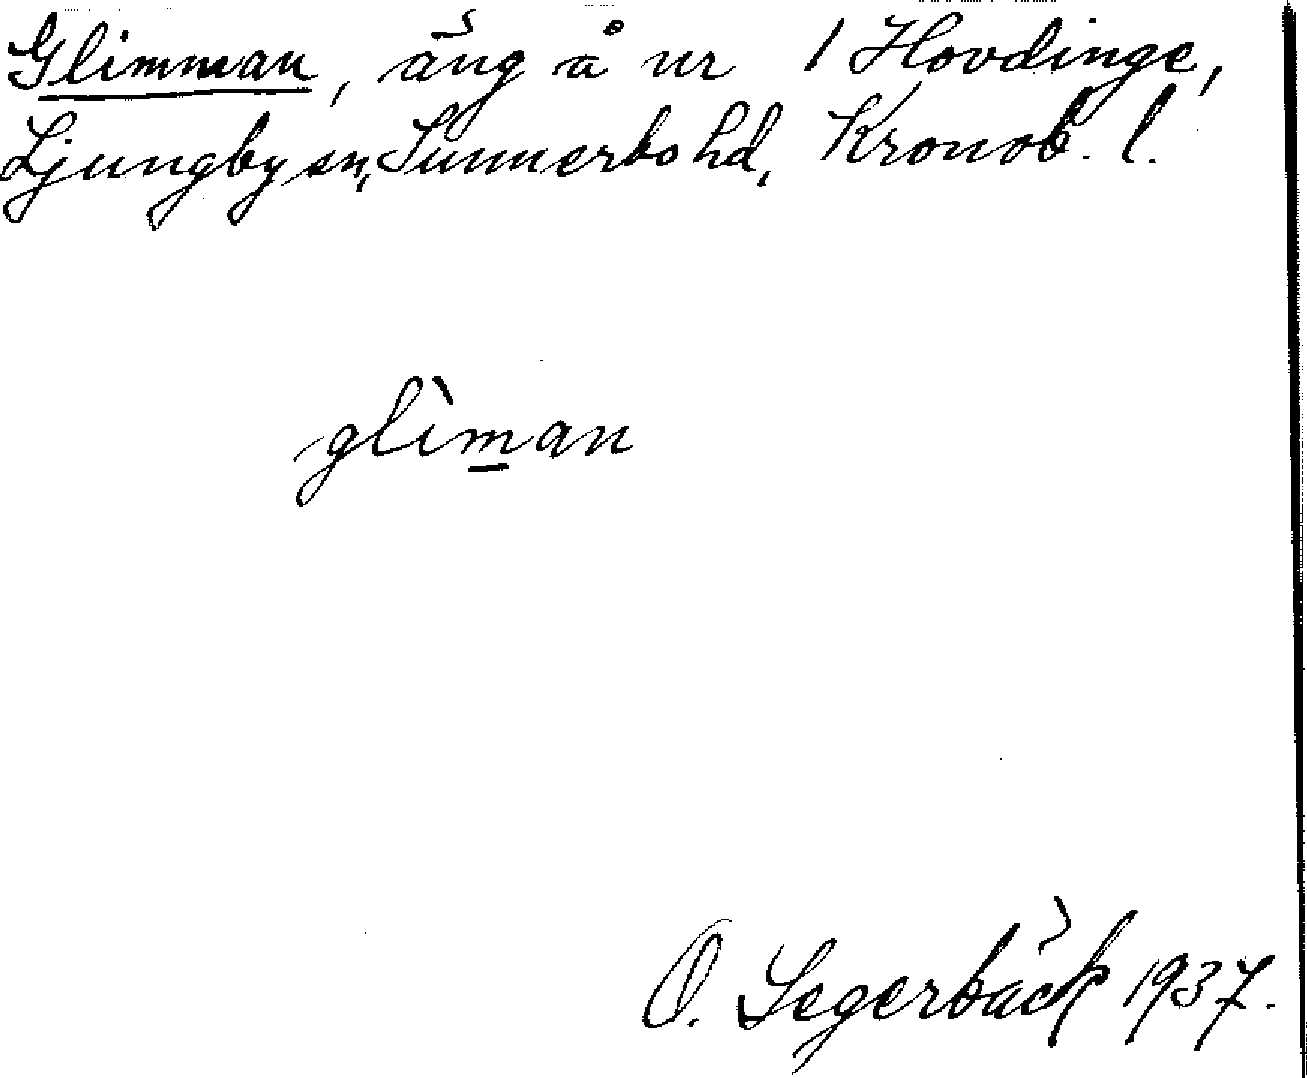 Glimman, äng å nr 1 Hovdinge,
Ljungby sn, Sunnerbo hd, Kronob. l.
glìm̲an
O. Segerbäck 1937.